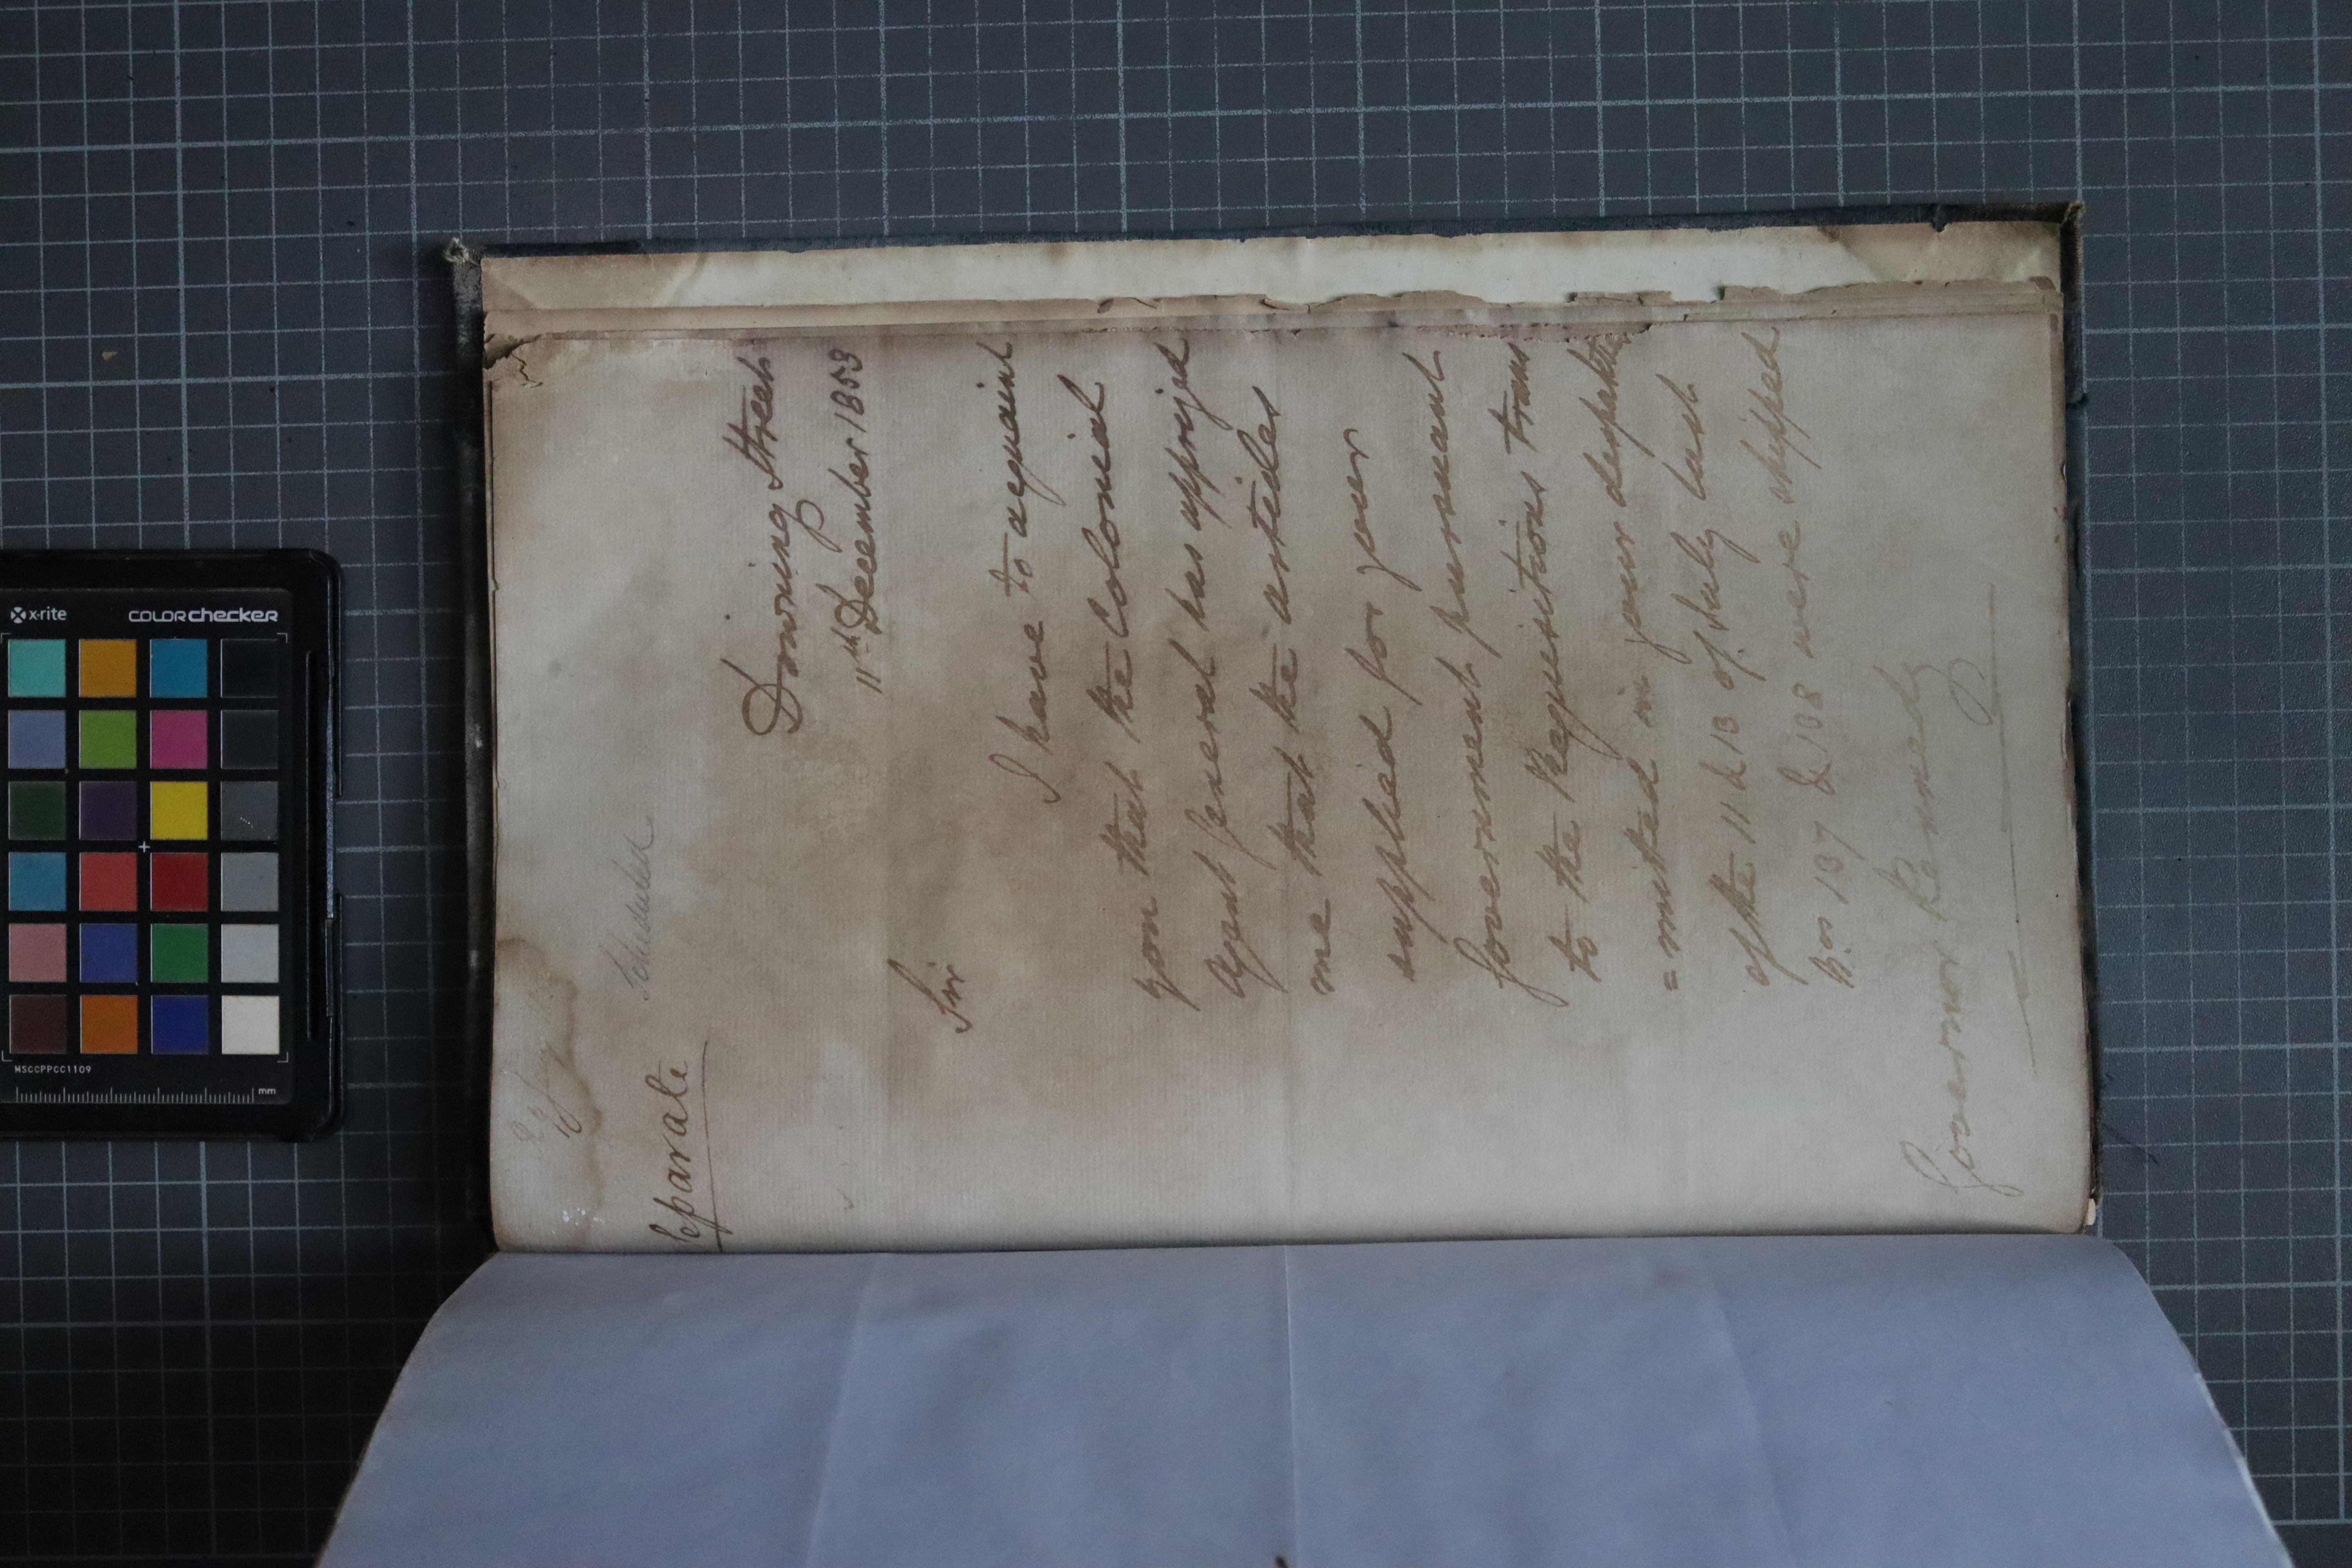 Scheduled
Separate
Downing Street
11th December 1853
Sir
I have to acquaint
you that the Colonial
Agent General has apprized
me that the articles
supplied for your
Government pursuant
to the Requisitions trans
= mitted in your despatches
of the 11 & 13 of July last
Nos 137 & 138 were shipped
Governor Kennedy
x-rite
colorchecker
MSCCPPCC1109
mm